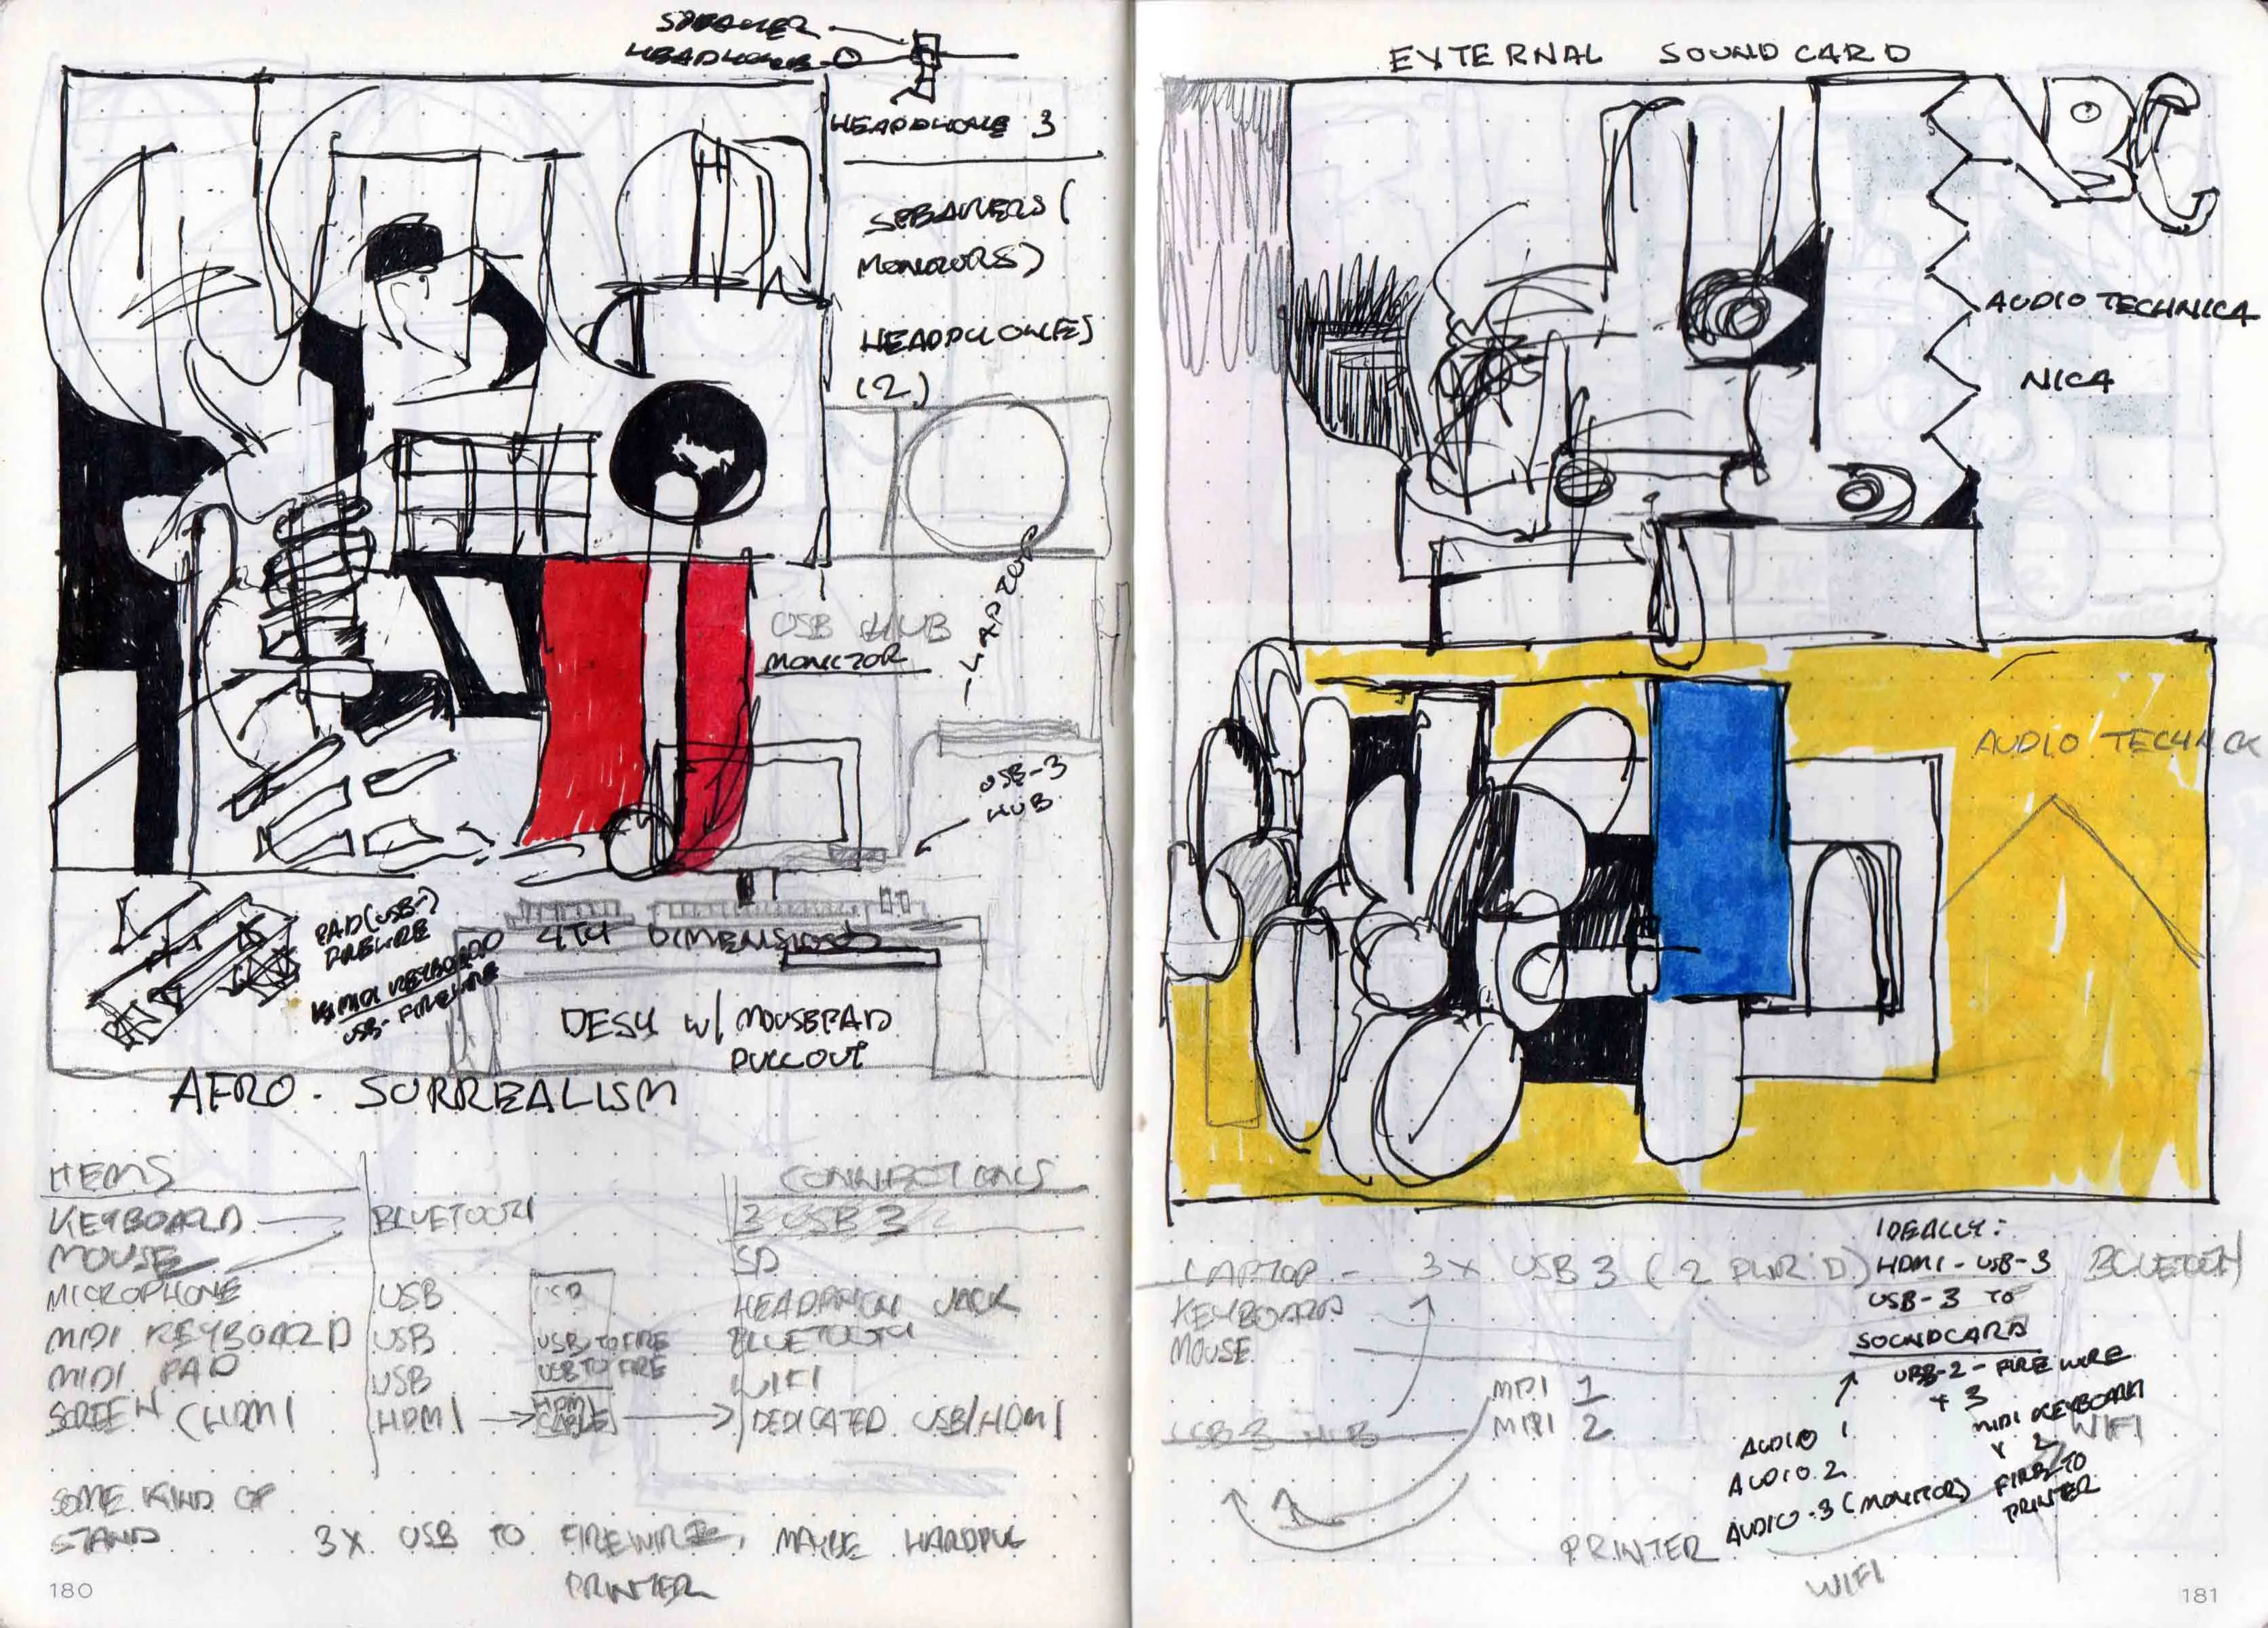 SPEAKER
HEADPHONE
HEADPHONE 3
SPEAKERS (
MONITORS)
HEADPHONE(S)
(2)
USB HUB
MONITOR
- LAPTOP
USB-3
HUB
PAD (USB-)
FIREWIRE
MIDI KEYBOARD
USB- FIREWIRE
4TH DIMENSION
DESK W/ MOUSEPAD
PULLOUT
AFRO-SURREALISM
ITEMS
CONNECTIONS
KEYBOARD
BLUETOOTH
3 USB 3
MOUSE
SD
MICROPHONE
USB
HEADPHON JACK
MIDI KEYBOARD
USB
USB TO FIRE
BLUETOOTH
MIDI PAD
USB
USB TO FIRE
WIFI
SCREEN (HDMI
HDMI
HDMI
CABLE
DEDICATED USB/HDMI
SOME KIND OF
STAND
3X USB TO FIREWIRE, MAYBE
PRINTER
180
EXTERNAL SOUNDCARD
AUDIO TECHNICA
NICA
AUDIO TECHNICA
IDEALLY:
LAPTOP - 3X USB 3 (2 PWR'D)
HDMI - USB-3
BLUETOOTH
KEYBOARD
USB-3 TO
MOUSE
SOUNDCARD
USB-2 - FIREWIRE
+ 3
MIDI 1
MIDI KEYBOARD
USB 3 HUB
MIDI 2
WIFI
AUDIO 1
AUDIO 2
AUDIO-3 (MONITOR)
FIRE TO
PRINTER
PRINTER
WIFI
181